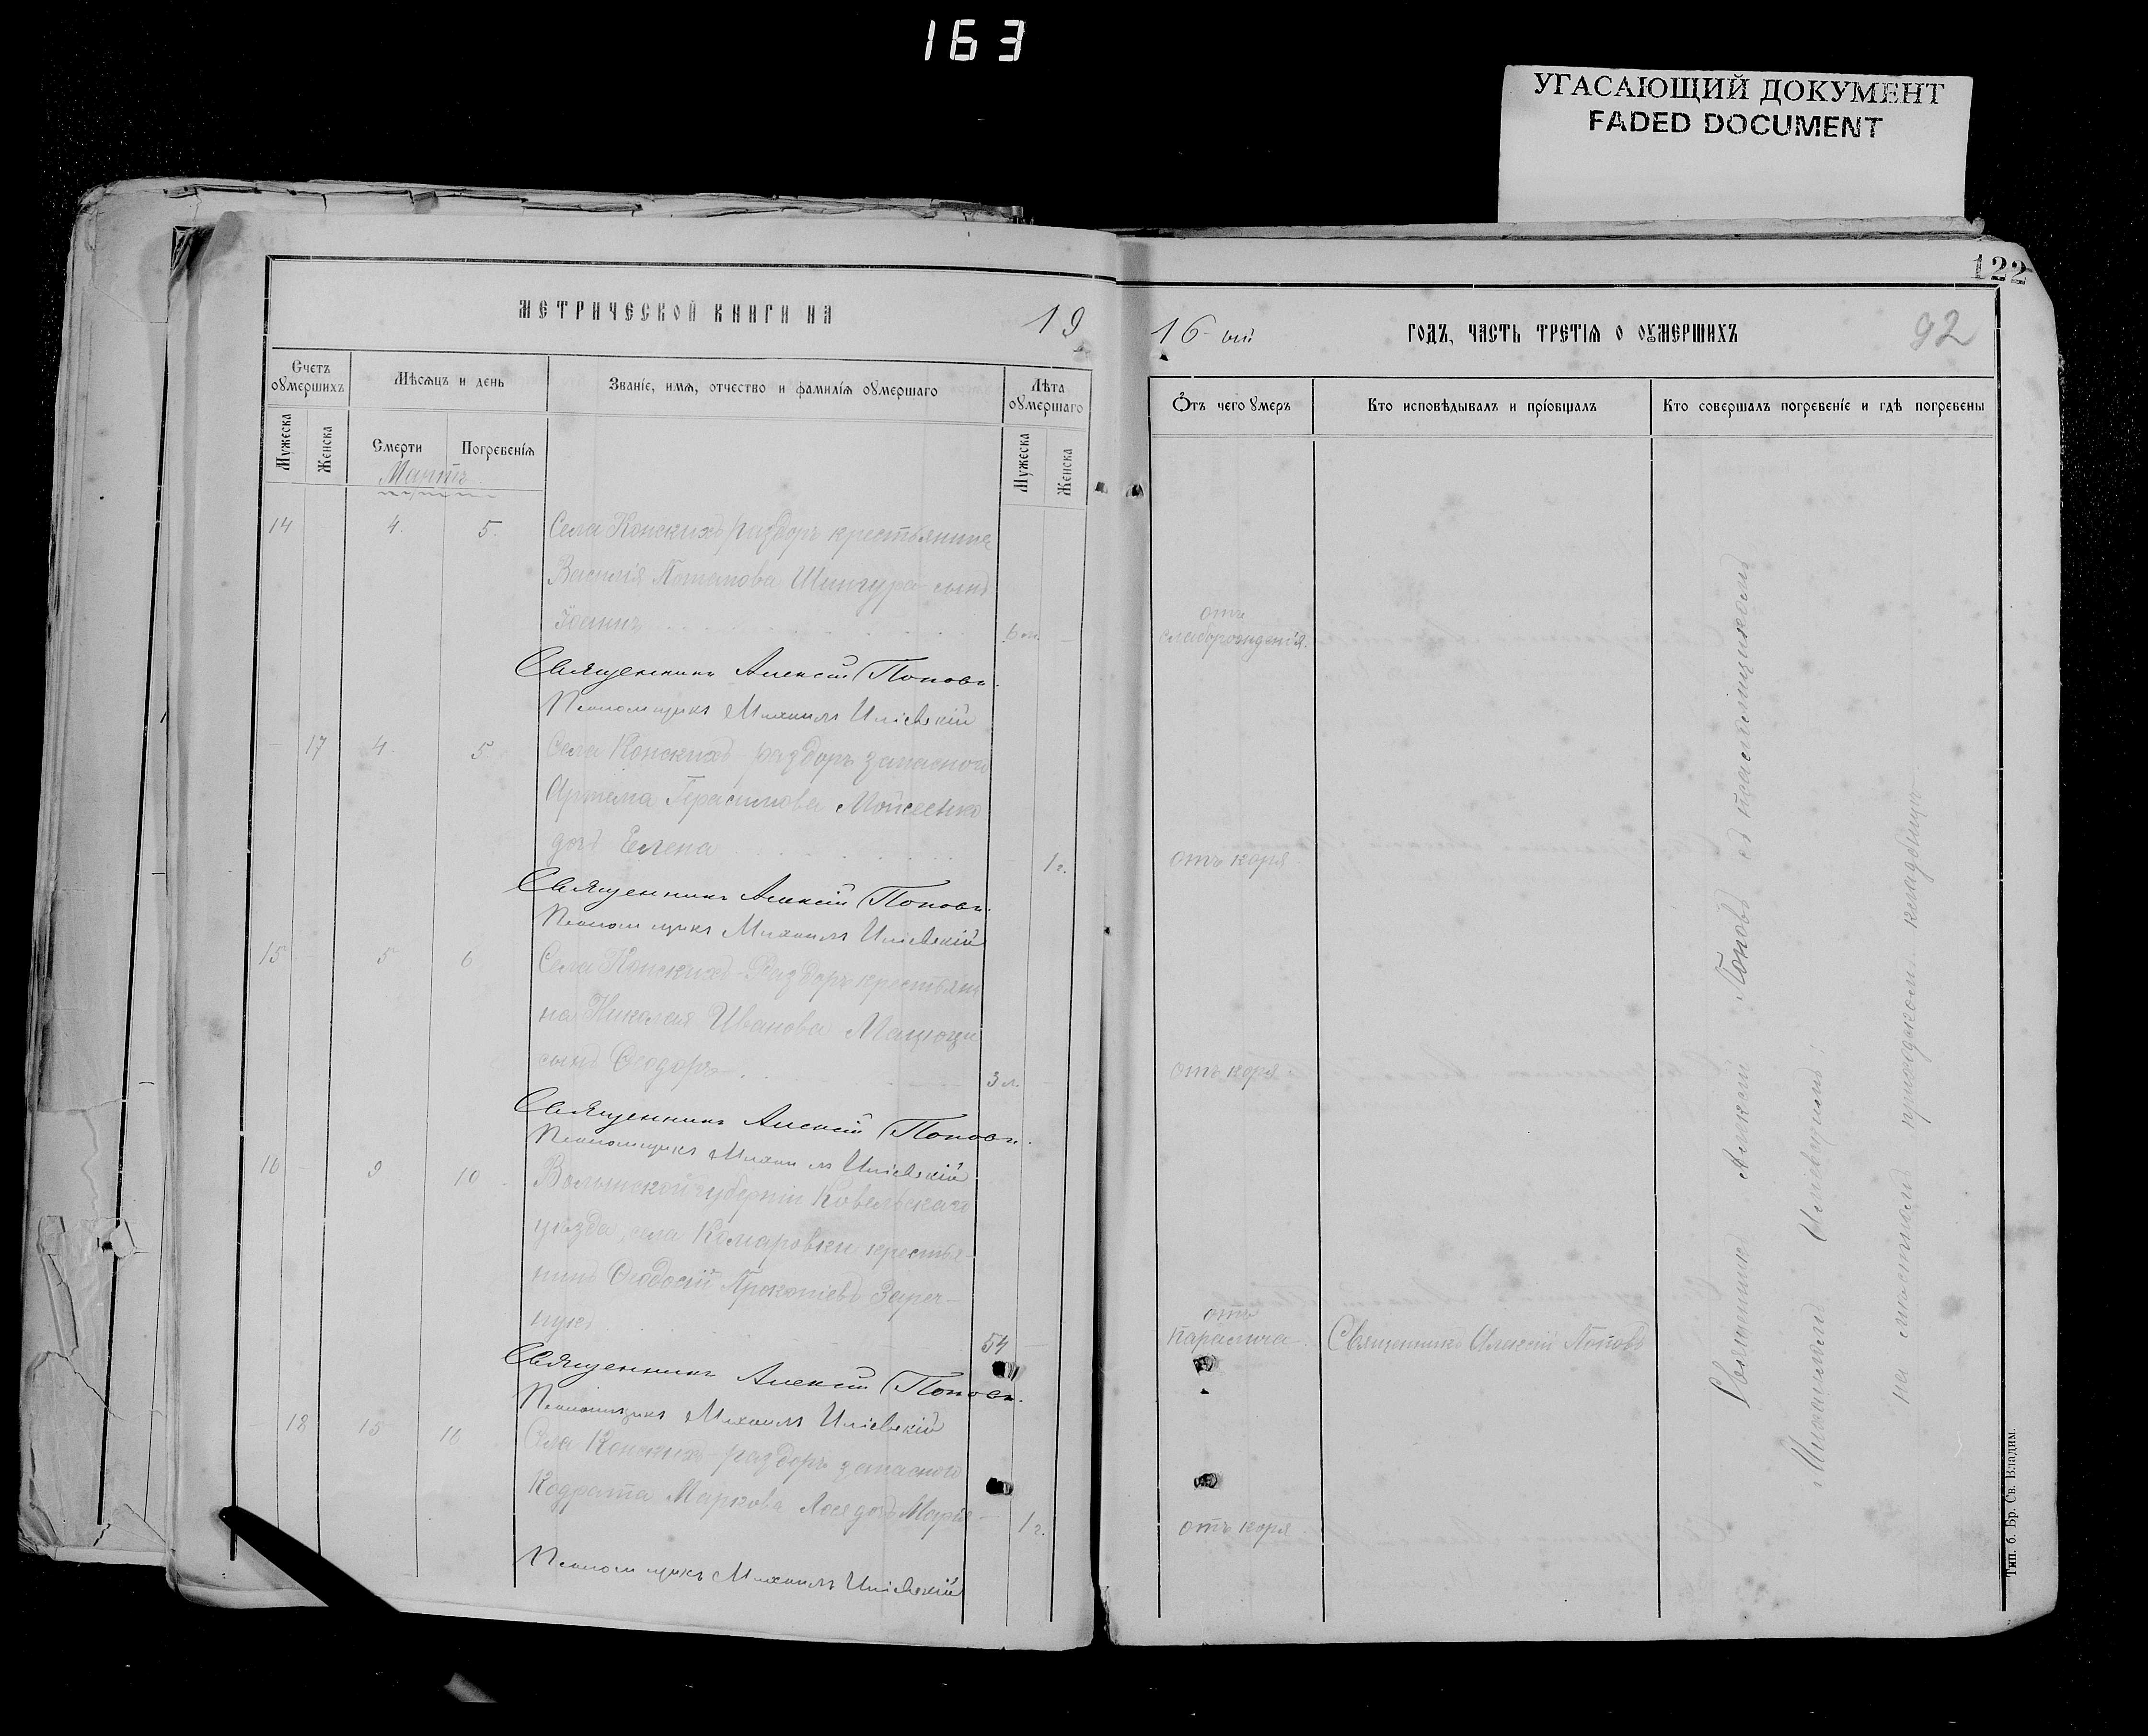 163
УГАСАЮЩИЙ ДОКУМЕНТ
FADED DOCUMENT
122
МЕТРИЧЕСКОЙ КНИГИ НА 19
16-ый ГОДЪ, ЧАСТЬ ТРЕТІЯ О ОУМЕРШИХЪ 92
Счетъ оумершихъ
Мѣсяцъ и день
Званіе, имя, отчество и фамилія оумершаго
Лѣта оумершаго
Мужеска
Женска
Смерти
Погребенія
Мужеска
Женска
Отъ чего умеръ
Кто исповѣдывалъ и пріобщалъ
Кто совершалъ погребеніе и гдѣ погребены
Мартъ
14 4. 5. Села Конскихъ раздоръ крестьянина
Василія Потапова Шингура сынъ
Іоаннъ 6 м. отъ слаборожденія.
Священникъ Алексій Поповъ.
Псаломщикъ Михаилъ Иліевскій
17 4. 5 Села Конскихъ-раздоръ запасного
Артема Герасимова Мойсеенко
дочь Елена 1 г. отъ кори
Священникъ Алексій Поповъ.
Псаломщикъ Михаилъ Иліевскій
15 5 6 Села Конскихъ-Раздоръ крестьяни
на Николая Иванова Мацюци
сынъ Ѳеодоръ 3 л. отъ кори
Священникъ Алексій Поповъ.
Псаломщикъ Михаилъ Иліевскій
16 9 10 Волынской губерніи Ковельскаго
уѣзда, села Комаровки крестья-
нинъ Ѳеодосій Прокопіевъ Зареч-
нукъ 54 отъ паралича. Священникъ Алексій Поповъ
Священникъ Алексій Поповъ.
Псаломщикъ Михаилъ Иліевскій
18 15 16 Села Конскихъ-раздоръ запасного
Кодрата Маркова Лося дочь Марія 1 г. отъ кори
Псаломщикъ Михаилъ Иліевскій
Священникъ Алексій Поповъ съ псаломщикомъ
Михаиломъ Иліевскимъ;
на мѣстномъ приходскомъ кладбищѣ
Тип. б. Бр. Св. Владим.